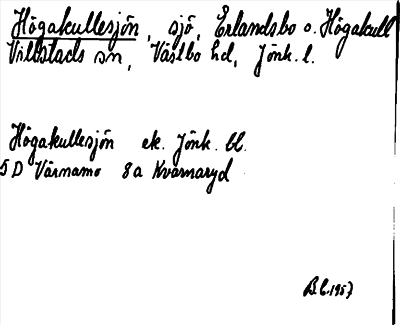 Högakullesjön, sjö, Erlandsbo o. Högakull
Villstads sn, Västbo hd, Jönk. l.
Högakullesjön ek. Jönk. bl.
5 D Värnamo 8a Kvarnaryd
B.C. 1957